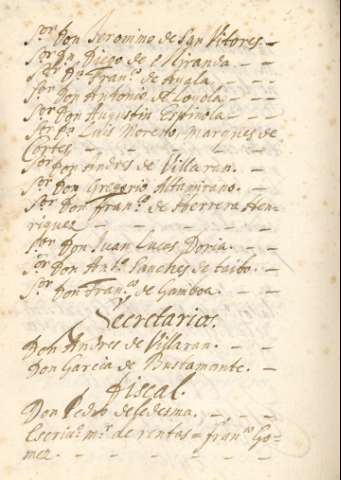 Sor. Don Jeronimo de San Vitores -
Sor. Dn. Diego de e Miranda. - -
Sor. Dn. Franco. de Ayala. - - -
Sor. Don Antonio de Loyola - - -
Sor. Don Augustin Espinola - - -
Sor. Dn. Luis Moreno, Marques de
Cortes - - - - - -
Sor. Don Andres de Villaran. - -
Sor. Don Gregorio Altamirano. - -
Sor. Don Franco. de Herrera Hen-
riquez - - - - - -
Sor. Don Juan Lucas Doria. - -
Sor. Don Anto. Sanches de taibo. -
Sor. Don Franco. de Gamboa. - -
Secretarios.
Don Andres de Villaran. - - -
Don Garcia de Bustamante. -
Fiscal.
Don Pedro de Ledesma, - - -
Escriuo. mr. de rentas = Franco. Go-
mez. - - - - - -